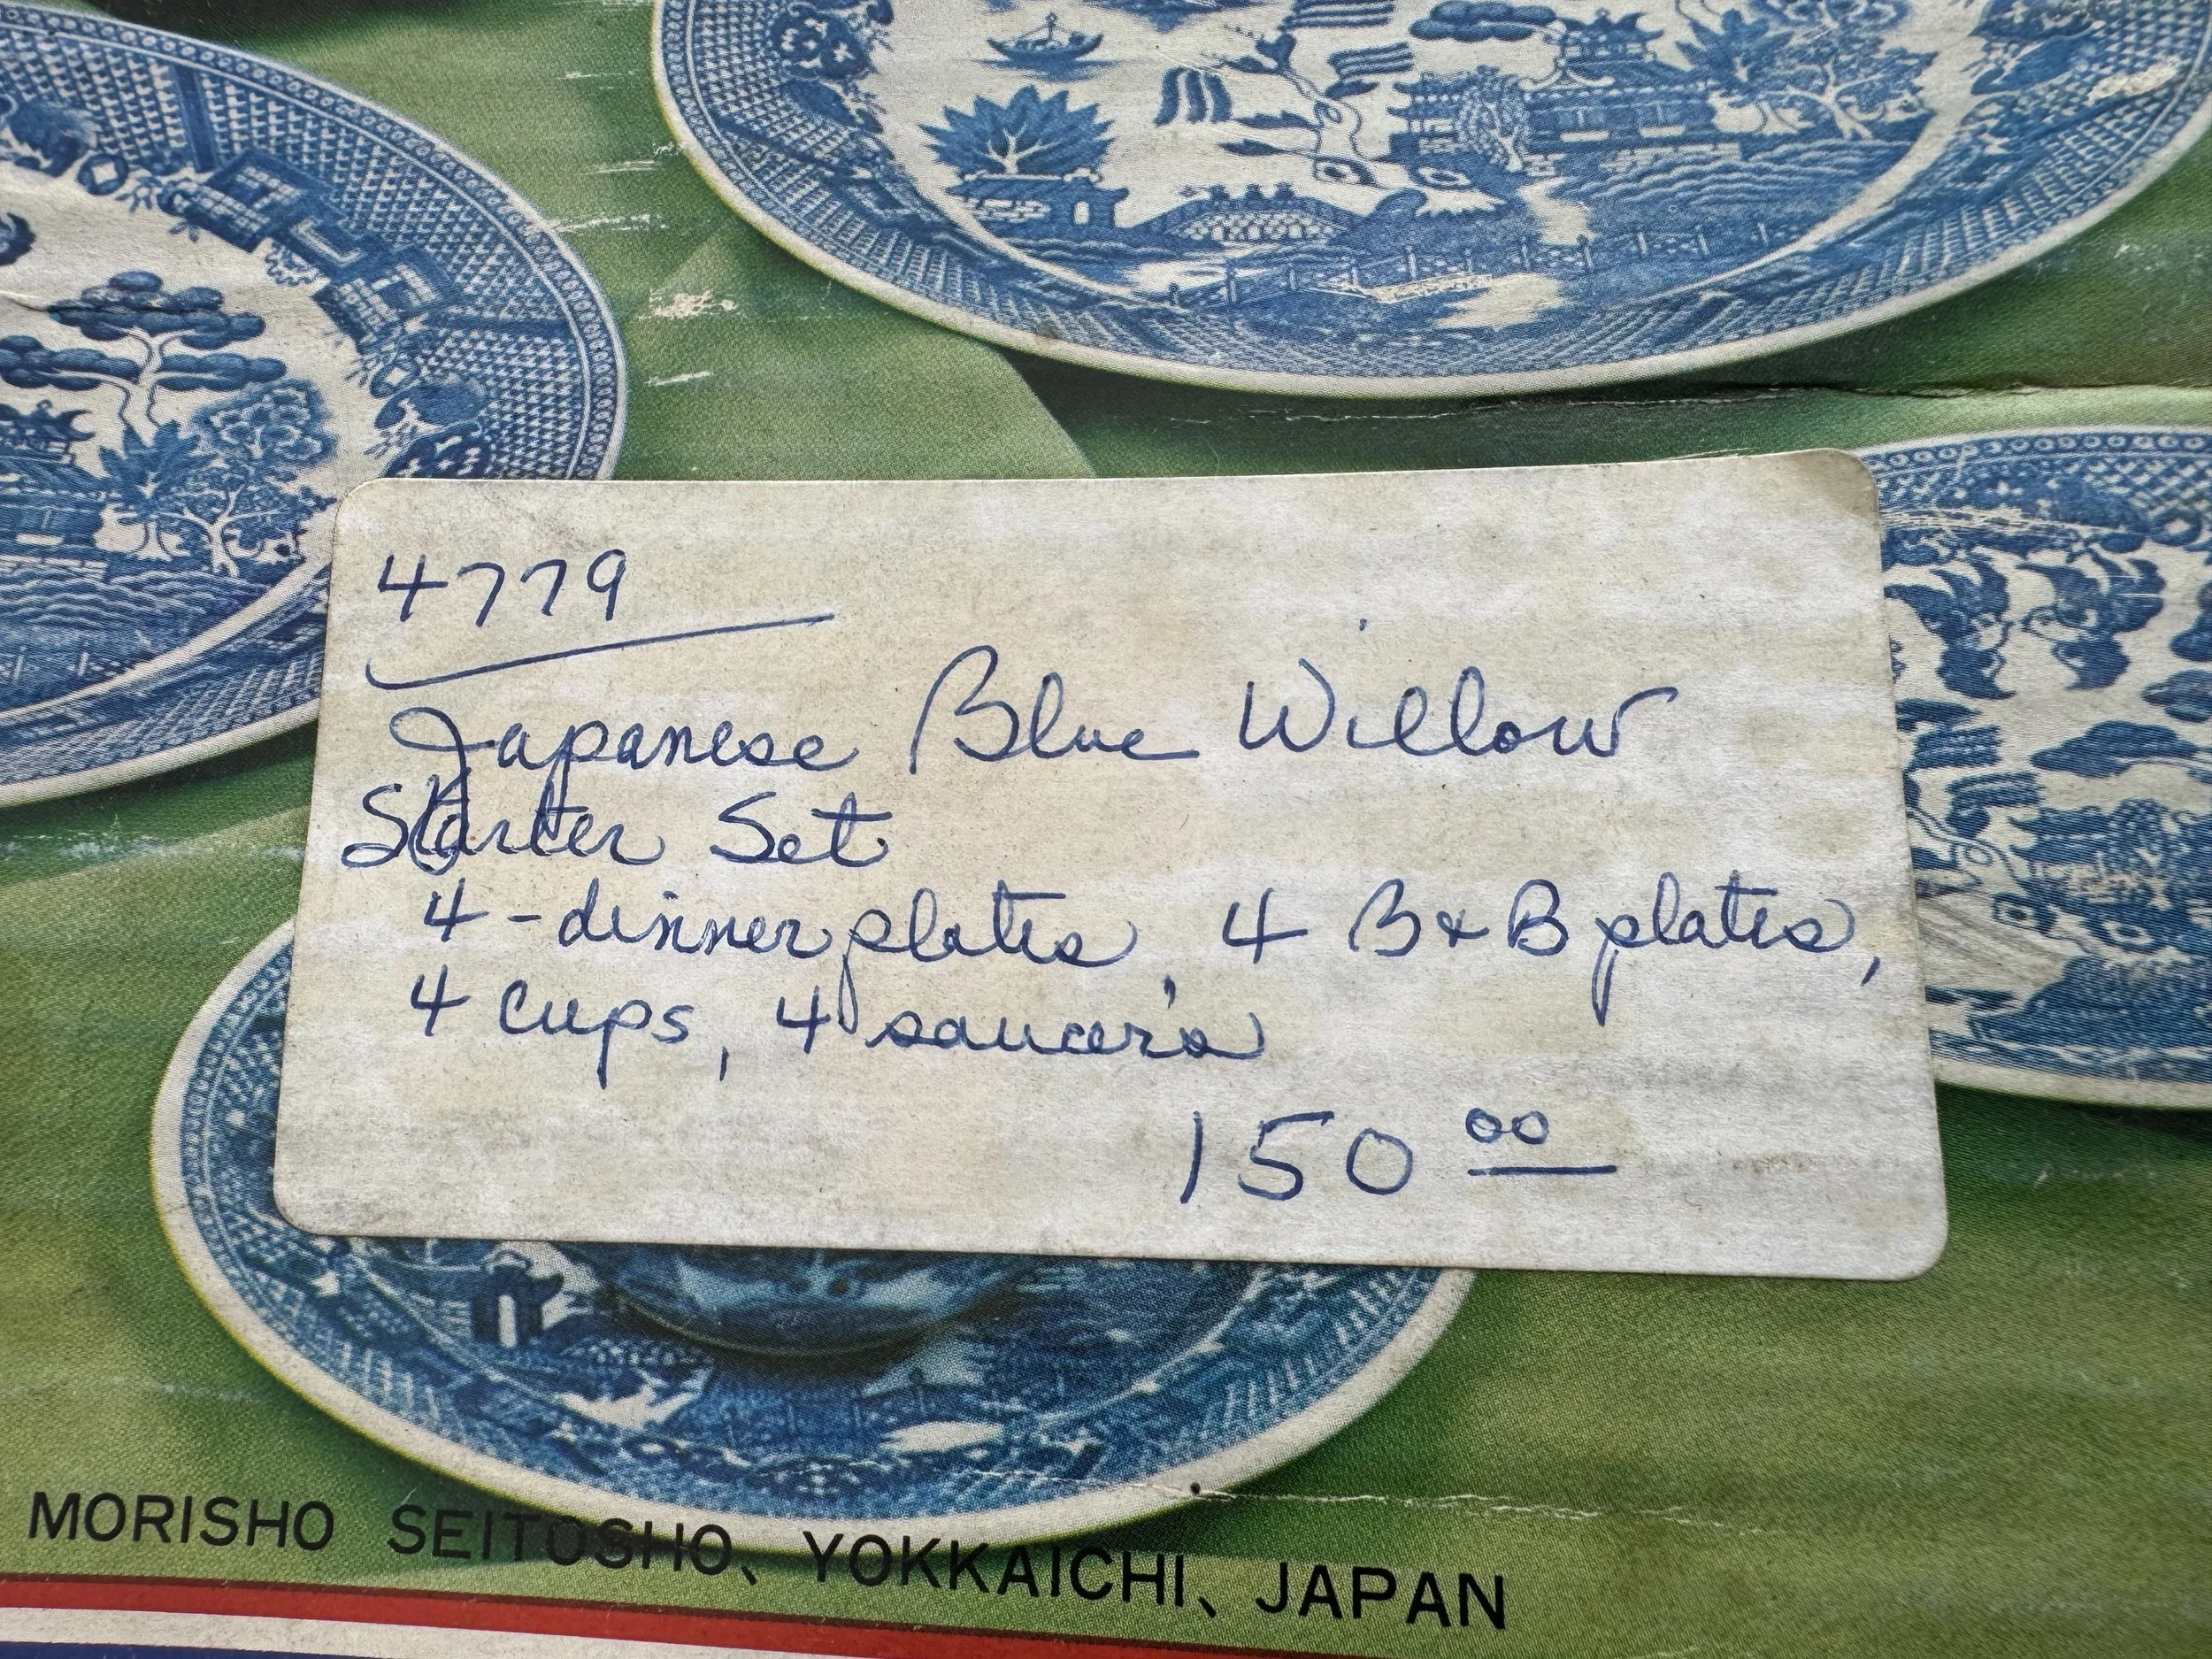 4779
Japanese Blue Willow
Starter Set
4-dinner plates, 4 B & B plates,
4 cups, 4 saucer's
150 00
MORISHO SEITOSHO、YOKKAICHI、JAPAN